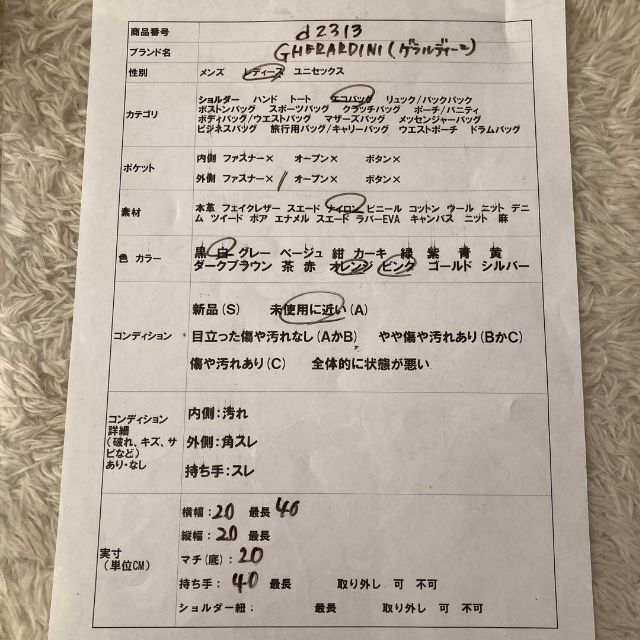 商品番号 d2313
ブランド名 GHERARDINI(ゲラルディーニ)
性別 メンズ レディース ユニセックス
カテゴリ
ショルダー ハンド トート エコバッグ リュック/バックパック
ボストンバッグ スポーツバッグ クラッチバッグ ポーチ/バニティ
ボディバッグ/ウエストバッグ マザーズバッグ メッセンジャーバッグ
ビジネスバッグ 旅行用バッグ/キャリーバッグ ウエストポーチ ドラムバッグ
ポケット
内側 ファスナー× オープン× ボタン×
外側 ファスナー× / オープン× ボタン×
素材
本革 フェイクレザー スエード ナイロン ビニール コットン ウール ニット デニ
ム ツイード ボア エナメル スエード ラバーEVA キャンバス ニット 麻
色 カラー
黒 白 グレー ベージュ 紺 カーキ 緑 紫 青 黄
ダークブラウン 茶 赤 オレンジ ピンク ゴールド シルバー
コンディション
新品(S) 未使用に近い(A)
目立った傷や汚れなし(AかB) やや傷や汚れあり(BかC)
傷や汚れあり(C) 全体的に状態が悪い
コンディション
詳細
(破れ、キズ、サ
ビなど)
あり・なし
内側:汚れ
外側:角スレ
持ち手:スレ
実寸
(単位CM)
横幅:20 最長 40
縦幅:20 最長
マチ(底):20
持ち手: 40 最長 取り外し 可 不可
ショルダー紐: 最長 取り外し 可 不可